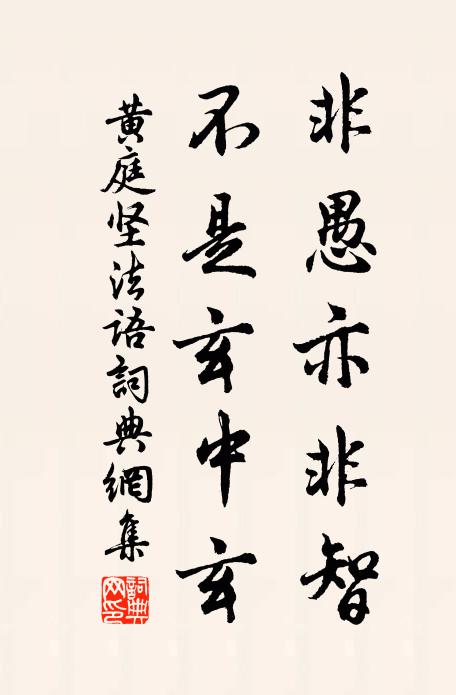 非愚亦非智
不是玄中玄
黄庭坚法语詞典網集
詞典网印